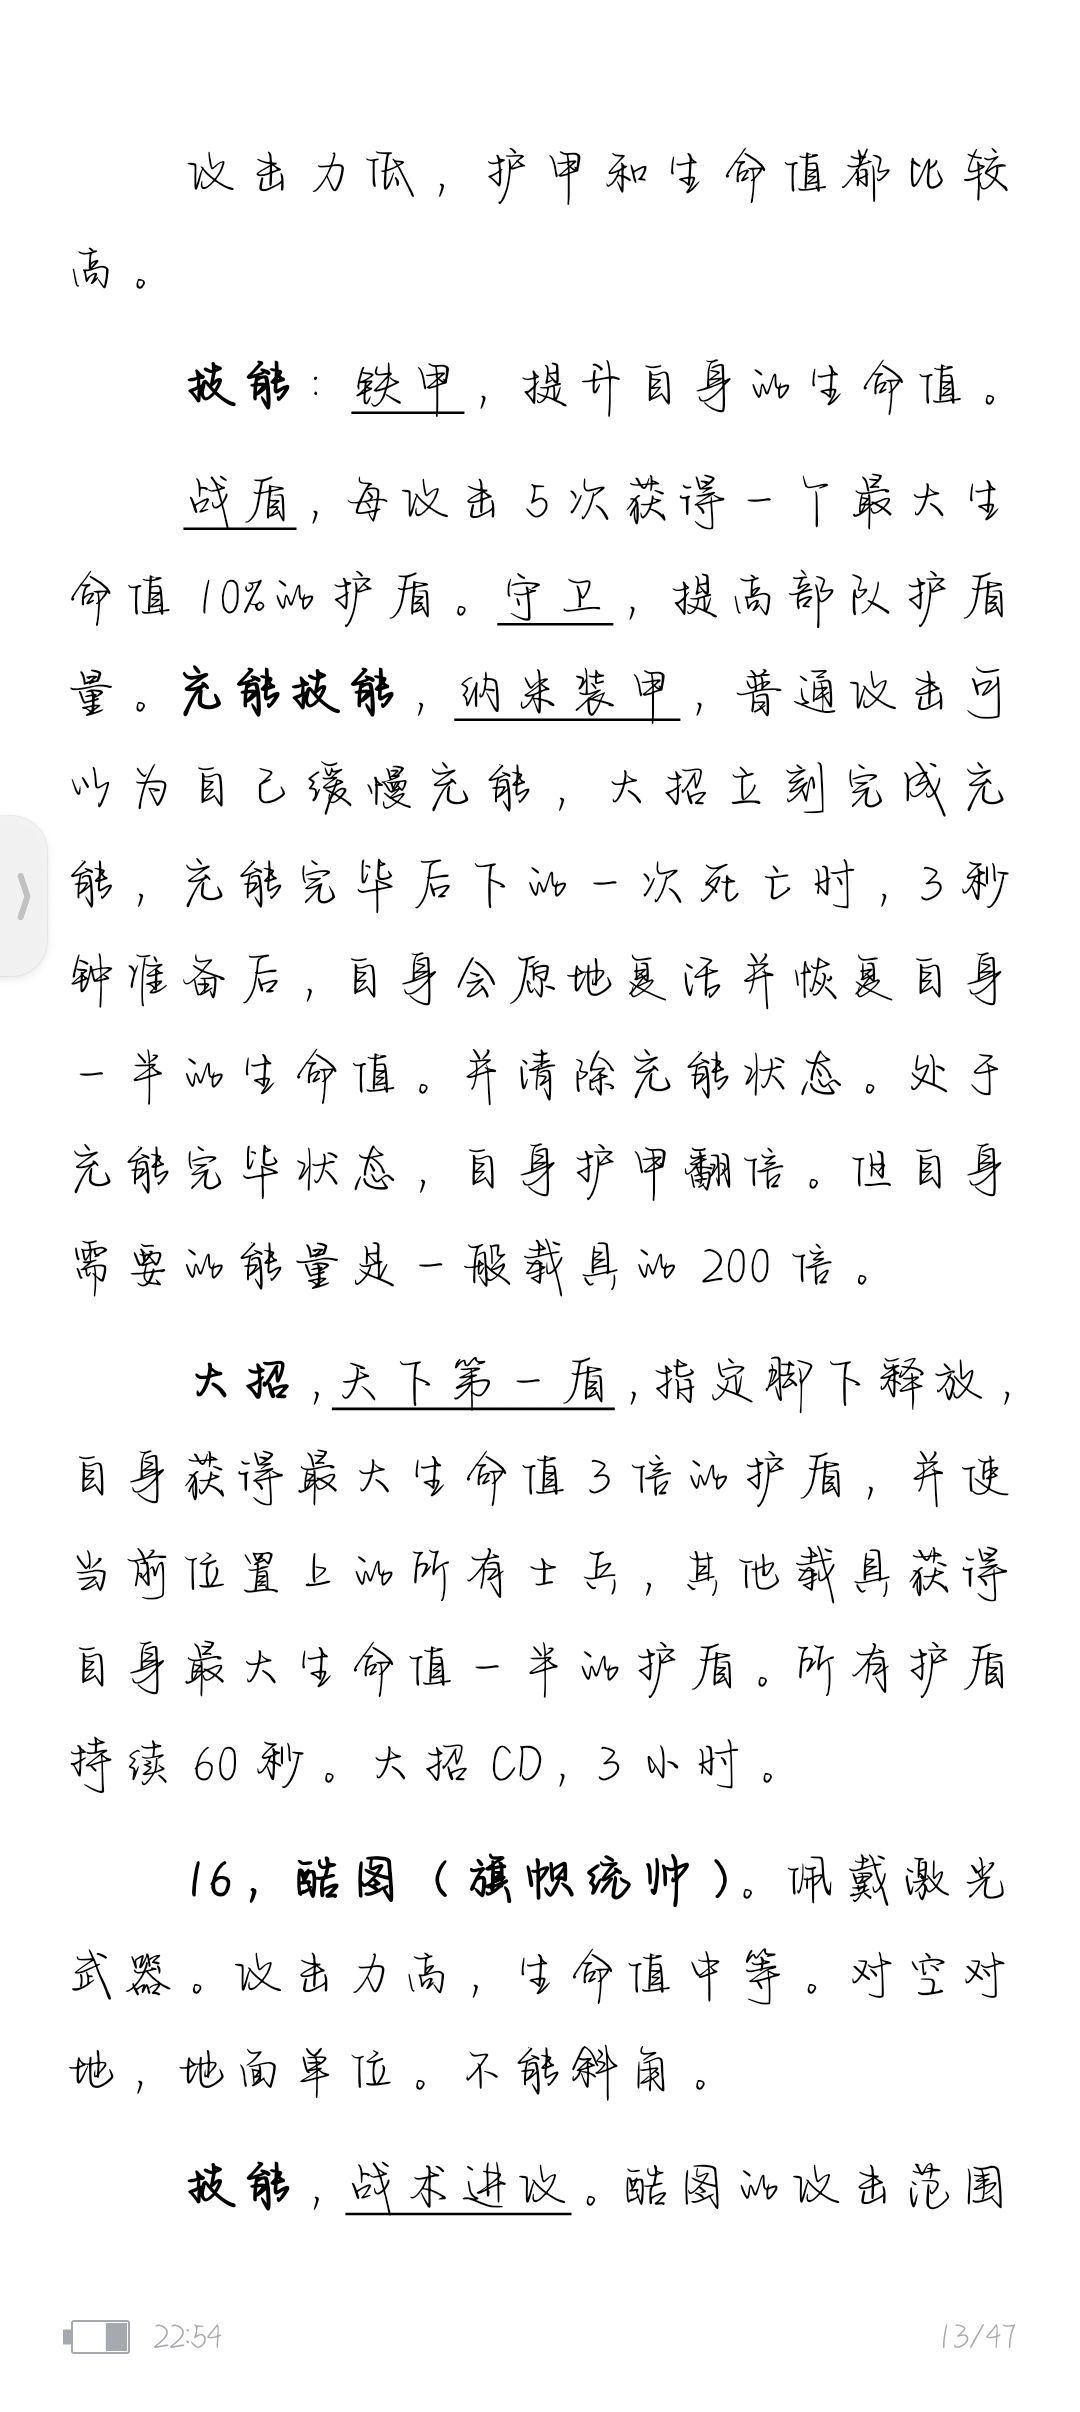 攻击力低，护甲和生命值都比较
高。
技能：铁甲，提升自身的生命值。
战盾，每攻击5次获得一个最大生
命值10%的护盾。守卫，提高部队护盾
量。充能技能，纳米装甲，普通攻击可
以为自己缓慢充能，大招立刻完成充
能，充能完毕后下的一次死亡时，3秒
钟准备后，自身会原地复活并恢复自身
一半的生命值。并清除充能状态。处于
充能完毕状态，自身护甲翻倍。但自身
需要的能量是一般载具的200倍。
大招，天下第一盾，指定脚下释放，
自身获得最大生命值3倍的护盾，并使
当前位置上的所有士兵，其他载具获得
自身最大生命值一半的护盾。所有护盾
持续60秒。大招CD，3小时。
16，酷图（旗帜统帅）。佩戴激光
武器。攻击力高，生命值中等。对空对
地，地面单位。不能斜角。
技能，战术进攻。酷图的攻击范围
22:54
13/47